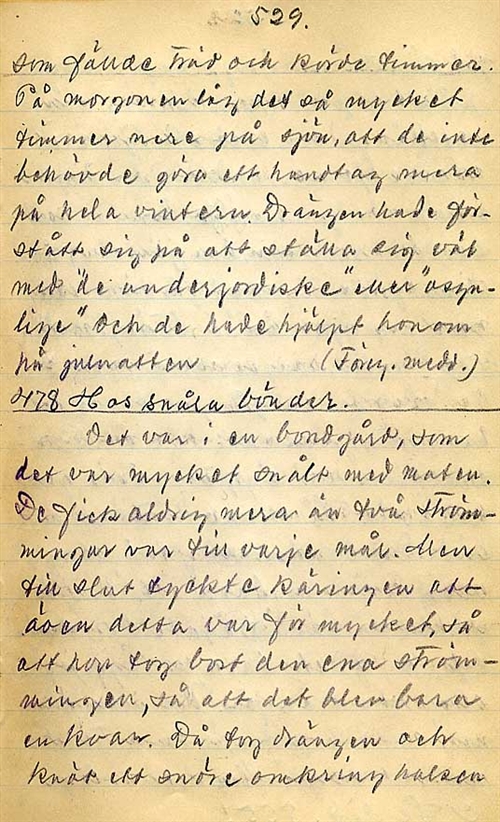 529.
som fällde träd och körde timmer.
På morgonen låg det så mycket
timmer nere på sjön, att de inte
behövde göra ett handtag mera
på hela vintern. Drängen hade för-
stått sig på att ställa sig väl
med "de underjordiske" eller "osyn-
lige" och de hade hjälpt honom
på julnatten (Föreg. medd.)
478 Hos snåla bönder.
Det var i en bondgård, som
det var mycket snålt med maten.
De fick aldrig mera än två ström-
mingar var till varje mål. Men
till slut tyckte käringen att
även detta var för mycket, så
att hon tog bort den ena ström-
mingen, så att det blev bara
en kvar. Då tog drängen och
knöt ett snöre omkring halsen